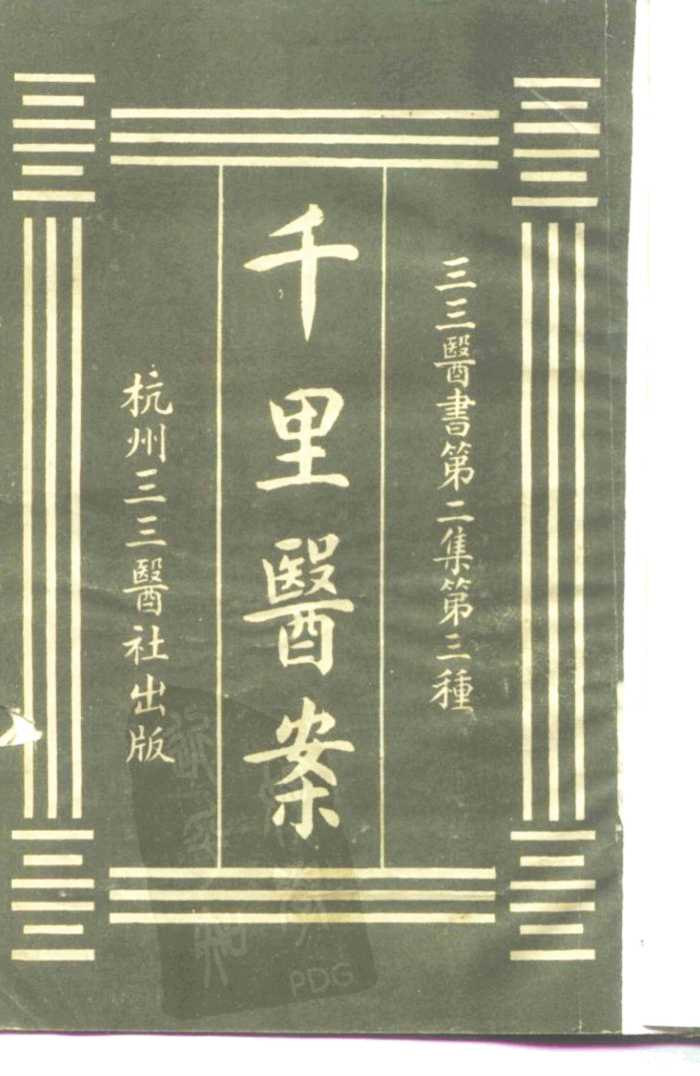 三三醫書第二集第三種
千里醫案
杭州三三醫社出版
PDG